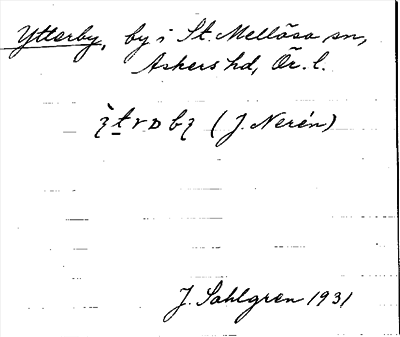 Ytterby, by i St. Mellösa sn,
Askers hd, Ör. l.
(J. Nerén)
J. Sahlgren 1931